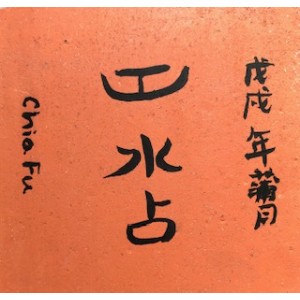 戊戌年蒲月
水占
Chia.Fu